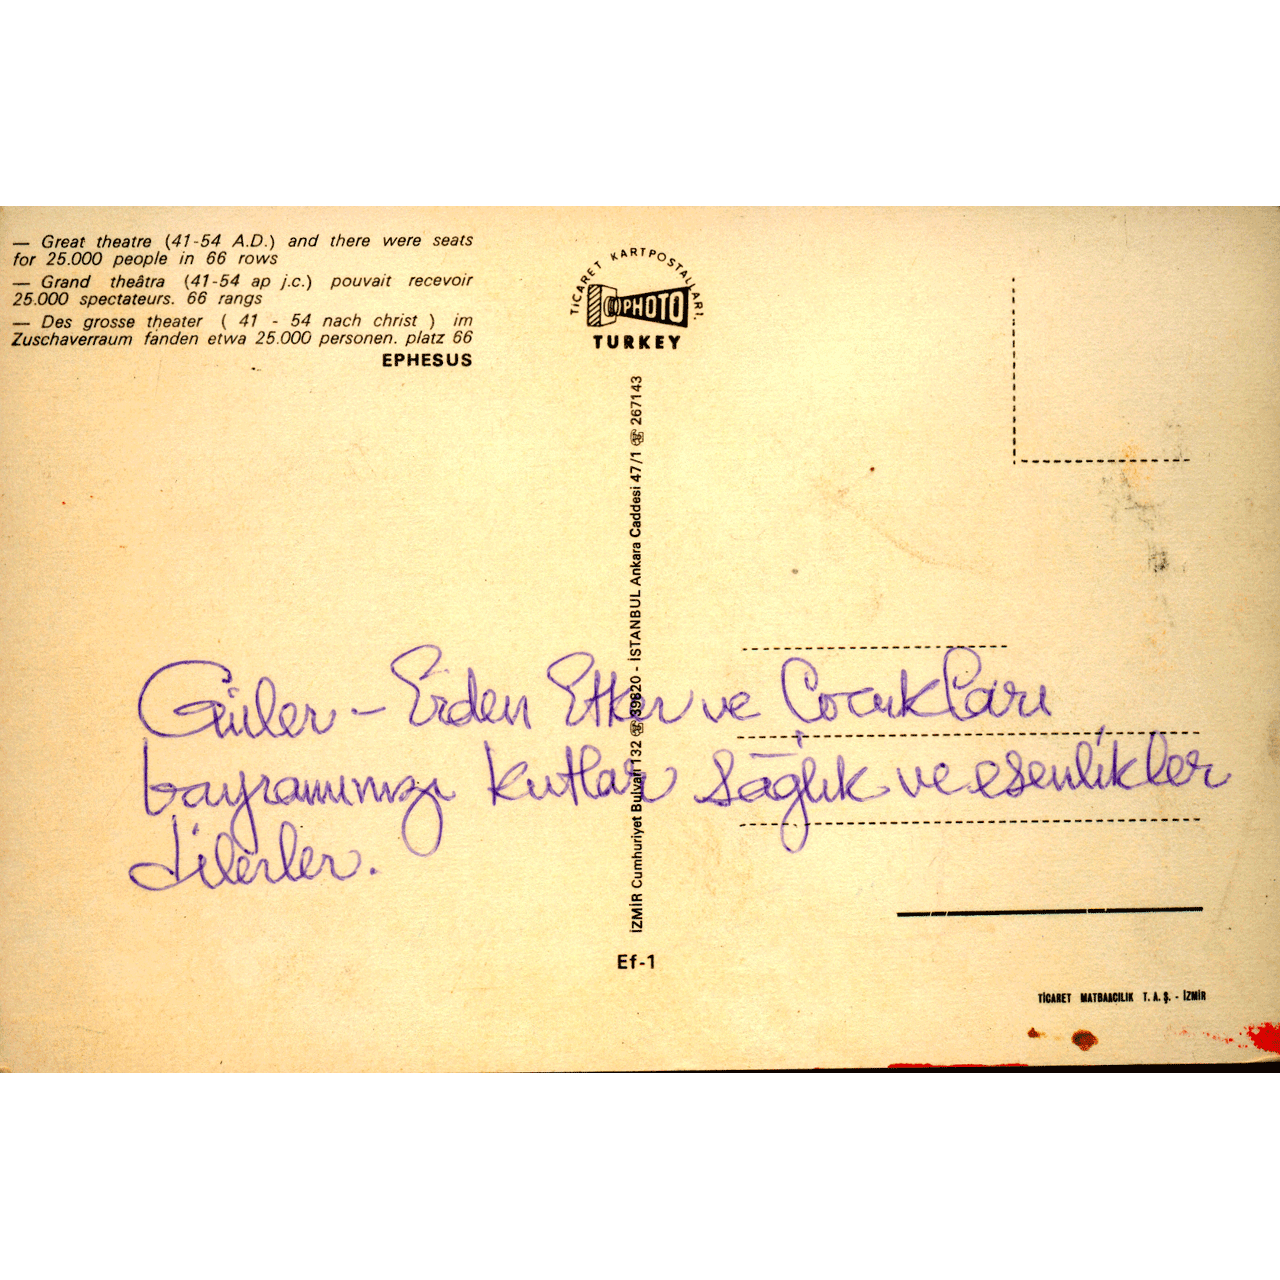 — Great theatre (41-54 A.D.) and there were seats
for 25.000 people in 66 rows
— Grand theâtra (41-54 ap j.c.) pouvait recevoir
25.000 spectateurs. 66 rangs
— Des grosse theater ( 41 - 54 nach christ ) im
Zuschaverraum fanden etwa 25.000 personen. platz 66
EPHESUS
TİCARET KARTPOSTALLARI.
PHOTO
TURKEY
İZMİR Cumhuriyet Bulvarı 132 ☏ 39820 - İSTANBUL Ankara Caddesi 47/1 ☏ 267143
Güler – Erden Etker ve Çocukları
bayramınızı kutlar sağlık ve esenlikler
dilerler.
Ef-1
TİCARET MATBAACILIK T.A.Ş. - İZMİR